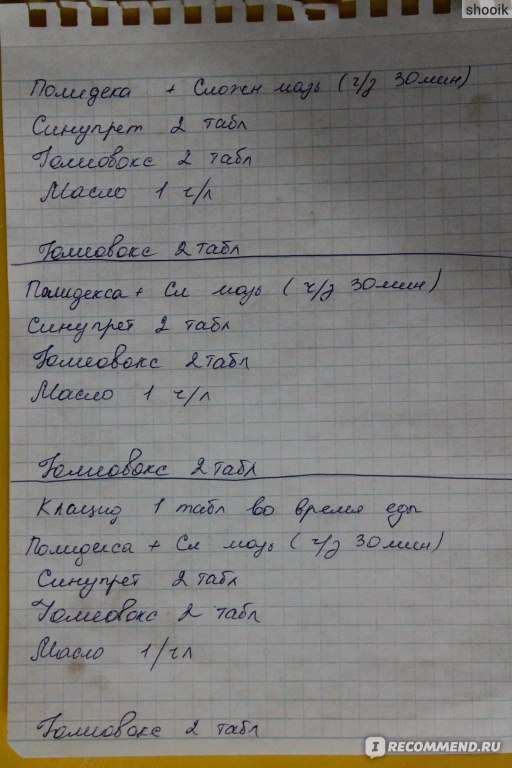 shooik
Полидека + Сложн мазь (ч/з 30 мин)
Синупрет 2 табл
Гомеовокс 2 табл
Масло 1 ч/л
Гомеовокс 2 табл
Полидекса + Сл мазь (ч/з 30 мин)
Синупрет 2 табл
Гомеовокс 2 табл
Масло 1 ч/л
Гомеовокс 2 табл
Клацид 1 табл во время еды
Полидекса + Сл мазь (ч/з 30 мин)
Синупрет 2 табл
Гомеовокс 2 табл
Масло 1/чл
Гомеовокс 2 табл
IRECOMMEND.RU